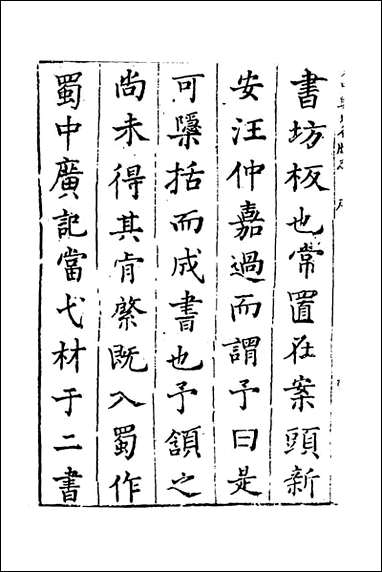 書坊板也常置在案頭新
安汪仲嘉過而謂予曰是
可櫽括而成書也予頷之
尚未得其肯綮既入蜀作
蜀中廣記當弋材于二書